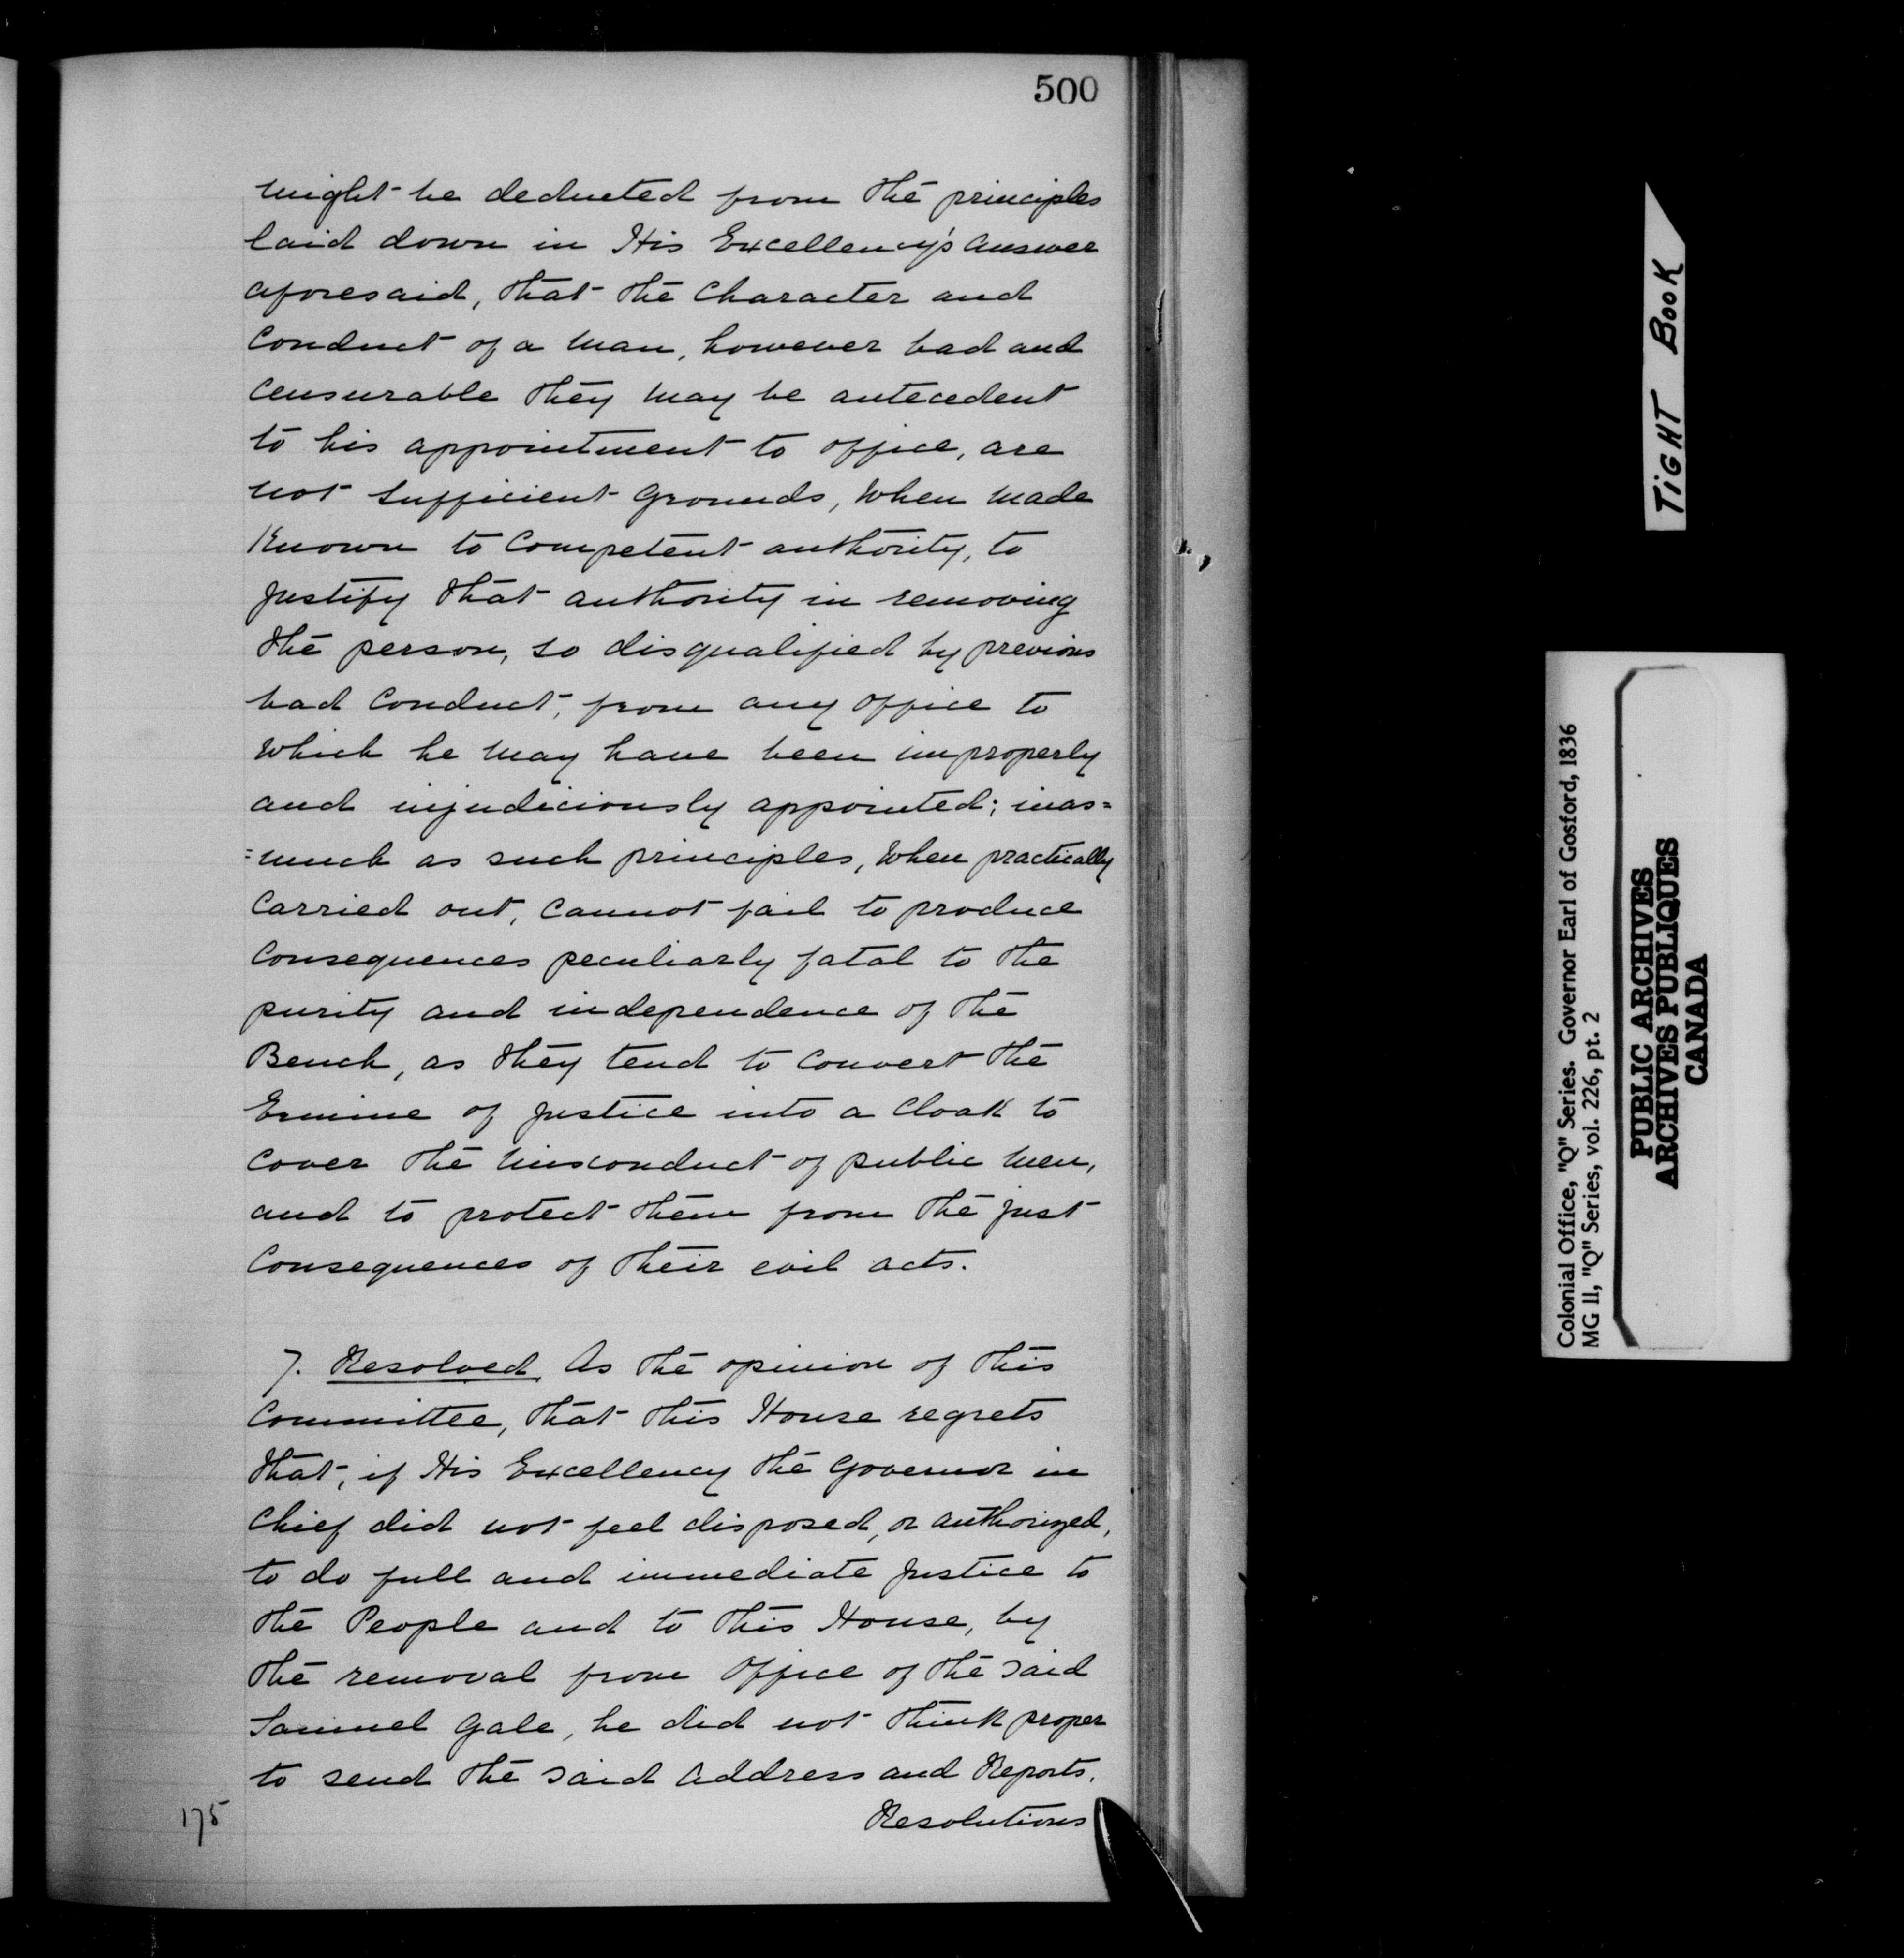 500
might be deducted from the principles
laid down in His Excellency's Answer
aforesaid, that the Character and
Conduct of a Man, however bad and
Censurable they may be antecedent
to his appointment to office, are
not sufficient grounds, When Made
Known to Competent authority, to
justify that authority in removing
the person, so disqualified by previous
bad Conduct, from any office to
Which he May have been improperly
and injudiciously appointed; inas=
=much as such principles, When practically
Carried out, Cannot fail to produce
Consequences peculiarly fatal to the
purity and independence of the
Bench, as they tend to Convert the
Ermine of justice into a Cloak to
Cover the Misconduct of public Men,
and to protect them from the just
Consequences of their evil acts.
7. Resolved, As the opinion of this
Committee, that this House regrets
that, if His Excellency the Governor in
Chief did not feel disposed, or authorized,
to do full and immediate justice to
the People and to this House, by
the removal from Office of the said
Samuel Gale, he did not think proper
to send the said Address and Reports,
Resolutions
175
TIGHT BOOK
Colonial Office, "Q" Series. Governor Earl of Gosford, 1836
MG 11, "Q" Series, vol. 226, pt. 2
PUBLIC ARCHIVES
ARCHIVES PUBLIQUES
CANADA